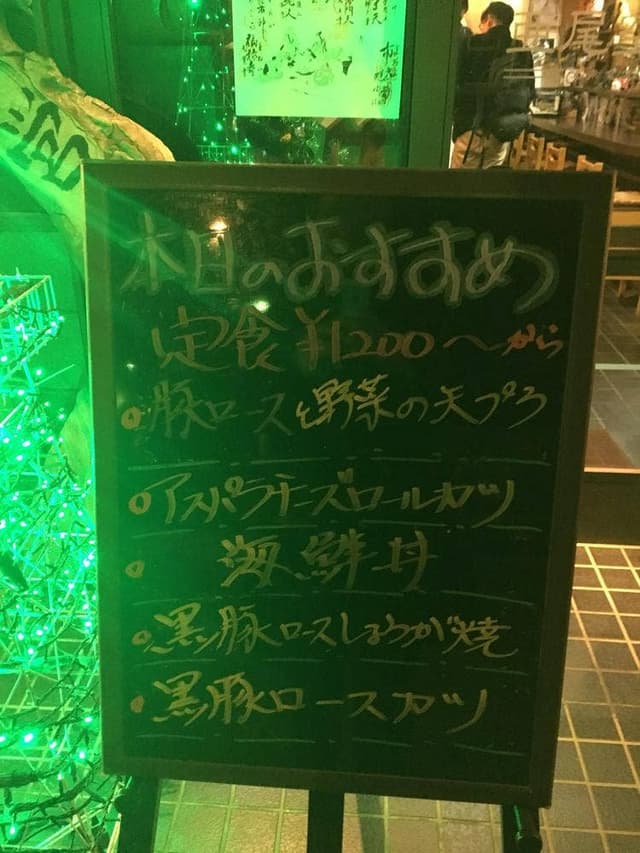 本日のおすすめ
定食 ¥1200〜から
豚ロースと野菜の天プラ
アスパラチーズロールカツ
海鮮丼
黒豚ロースしょうが焼
黒豚ロースカツ